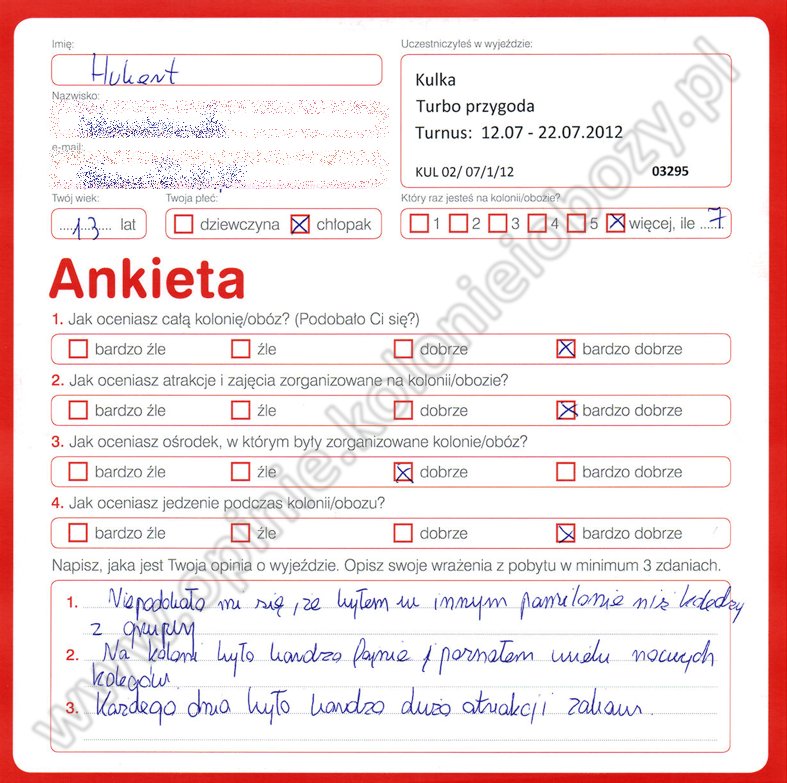 Imię:
Hubert
Nazwisko:
e-mail:
Twój wiek:
13 lat
Twoja płeć:
dziewczyna chłopak
Uczestniczyłeś w wyjeździe:
Kulka
Turbo przygoda
Turnus: 12.07 - 22.07.2012
KUL 02/ 07/1/12 03295
Który raz jesteś na kolonii/obozie?
1 2 3 4 5 więcej, ile 7
Ankieta
1. Jak oceniasz całą kolonię/obóz? (Podobało Ci się?)
bardzo źle źle dobrze bardzo dobrze
2. Jak oceniasz atrakcje i zajęcia zorganizowane na kolonii/obozie?
bardzo źle źle dobrze bardzo dobrze
3. Jak oceniasz ośrodek, w którym były zorganizowane kolonie/obóz?
bardzo źle źle dobrze bardzo dobrze
4. Jak oceniasz jedzenie podczas kolonii/obozu?
bardzo źle źle dobrze bardzo dobrze
Napisz, jaka jest Twoja opinia o wyjeździe. Opisz swoje wrażenia z pobytu w minimum 3 zdaniach.
1. Niepodobało mi się, że byłem w innym pamilonie niż koledzy
z grupy
2. Na koloni było bardzo fajnie i poznałem wielu nowych
kolegów.
3. Kazdego dnia było bardzo dużo atrakcji i zabaw.
www.opinie.kolonieiobozy.pl